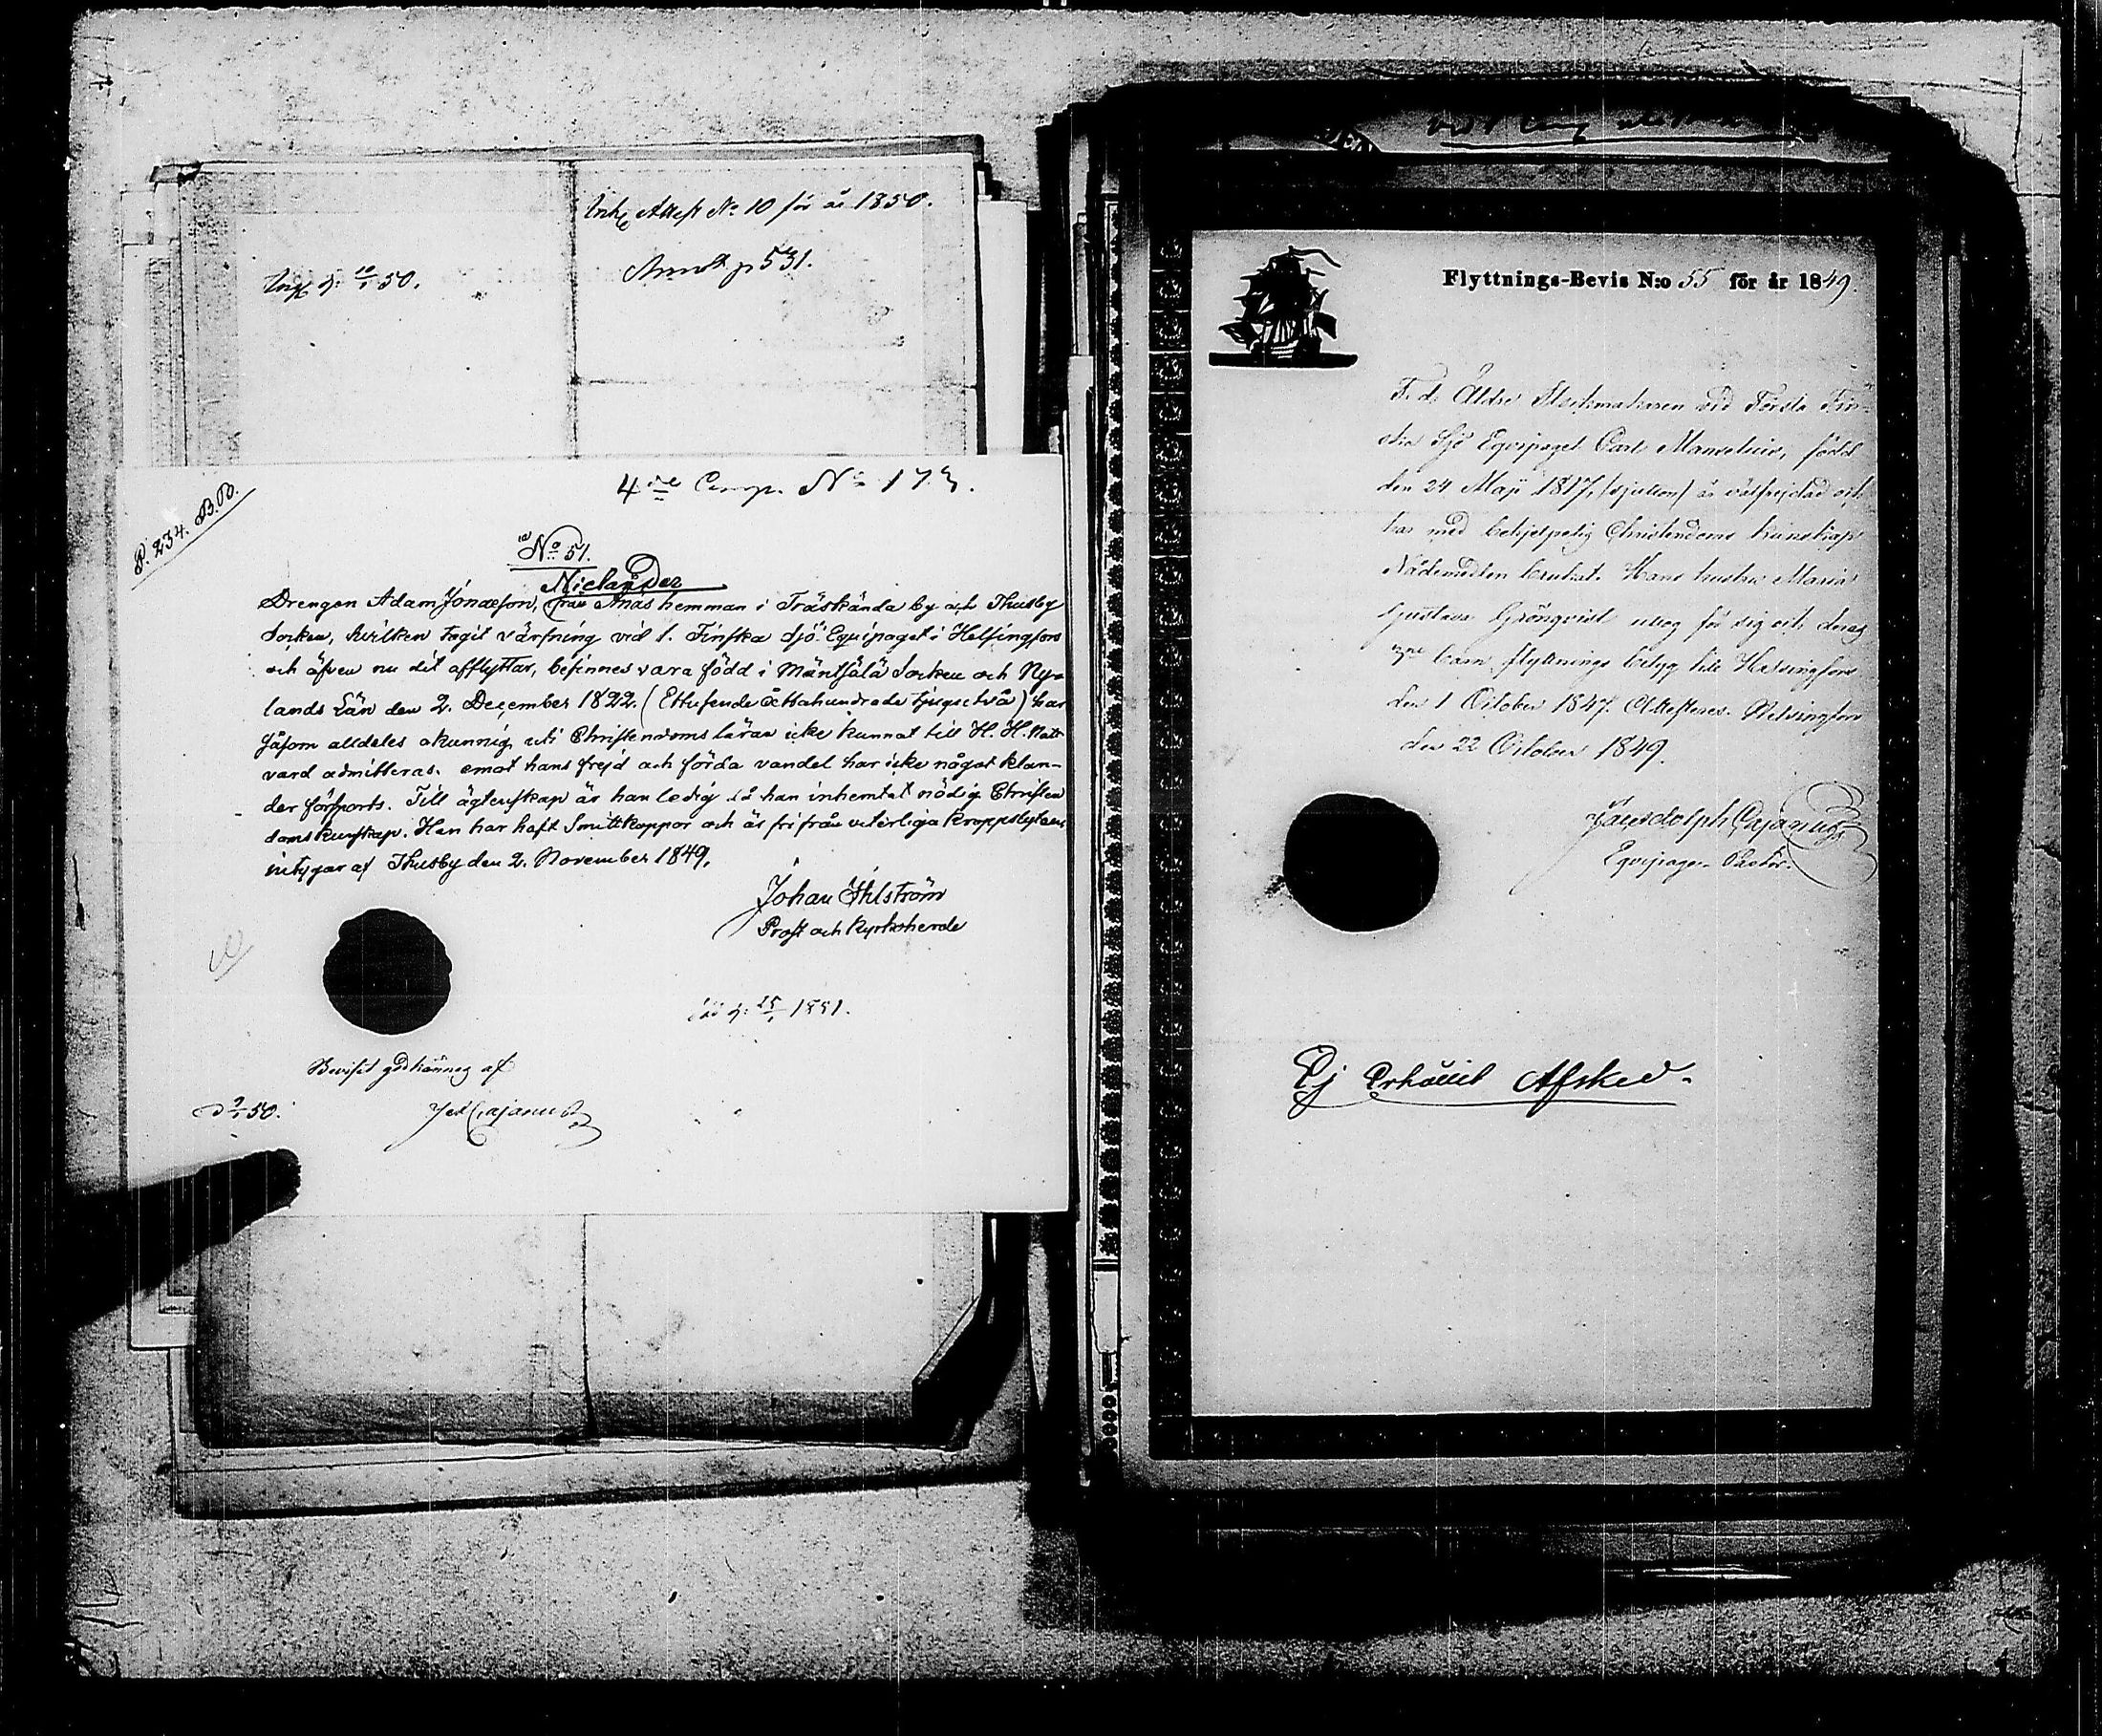 Attest No 10 för år 1850.
p 531.
10/1 50.
4de Comp. No 173.
P. 234. B.B.
No 51.
Niclander
Drengen Adam Jonasson, från Anas hemman i Träskända by och Thusby
Socken, hvilken tagit värfning vid 1. Finska Sjö-Equipaget i Helsingfors
och äfven nu dit afflyttar, befinnes vara född i Mäntsälä Socken och Ny-
lands Län den 2. December 1822. (Ettusende åttahundrade tjugutvå) har
såsom alldeles okunnig uti Christendomsläran icke kunnat till H. H. Natt-
vard admitteras. emot hans frejd och förda vandel har icke något klan-
der försports. Till ägtenskap är han ledig då han inhemtat nödig Christen
domskunskap. Han har haft Smittkoppor och är fri från veterliga kroppslyten,
intygar af Thusby den 2. November 1849.
Johan Ahlström
Prost och Kyrkoherde
d: 25/1 1851.
Beviset godkännes af
d 9/1 50.
Cajanus
Flyttnings-Bevis N:o 55 för år 1849.
F. d. Äldre Stockmakaren vid Första Fin-
ska Sjö Equipaget Carl Manselius, född
den 24 Maji 1817, (sjutton) är välfrejdad och
har med behjelpelig Christendoms kunskap
Nådemedlen brukat. Hans hustru Maria
Gustava Grönqvist uttog för sig och deras
barn flyttnings betyg till Helsingfors
den 1 October 1847. Attesteres. Helsingfors
den 22 October 1849.
Cajanus
Equipage-Pastor.
Ej Erhållit Afsked.